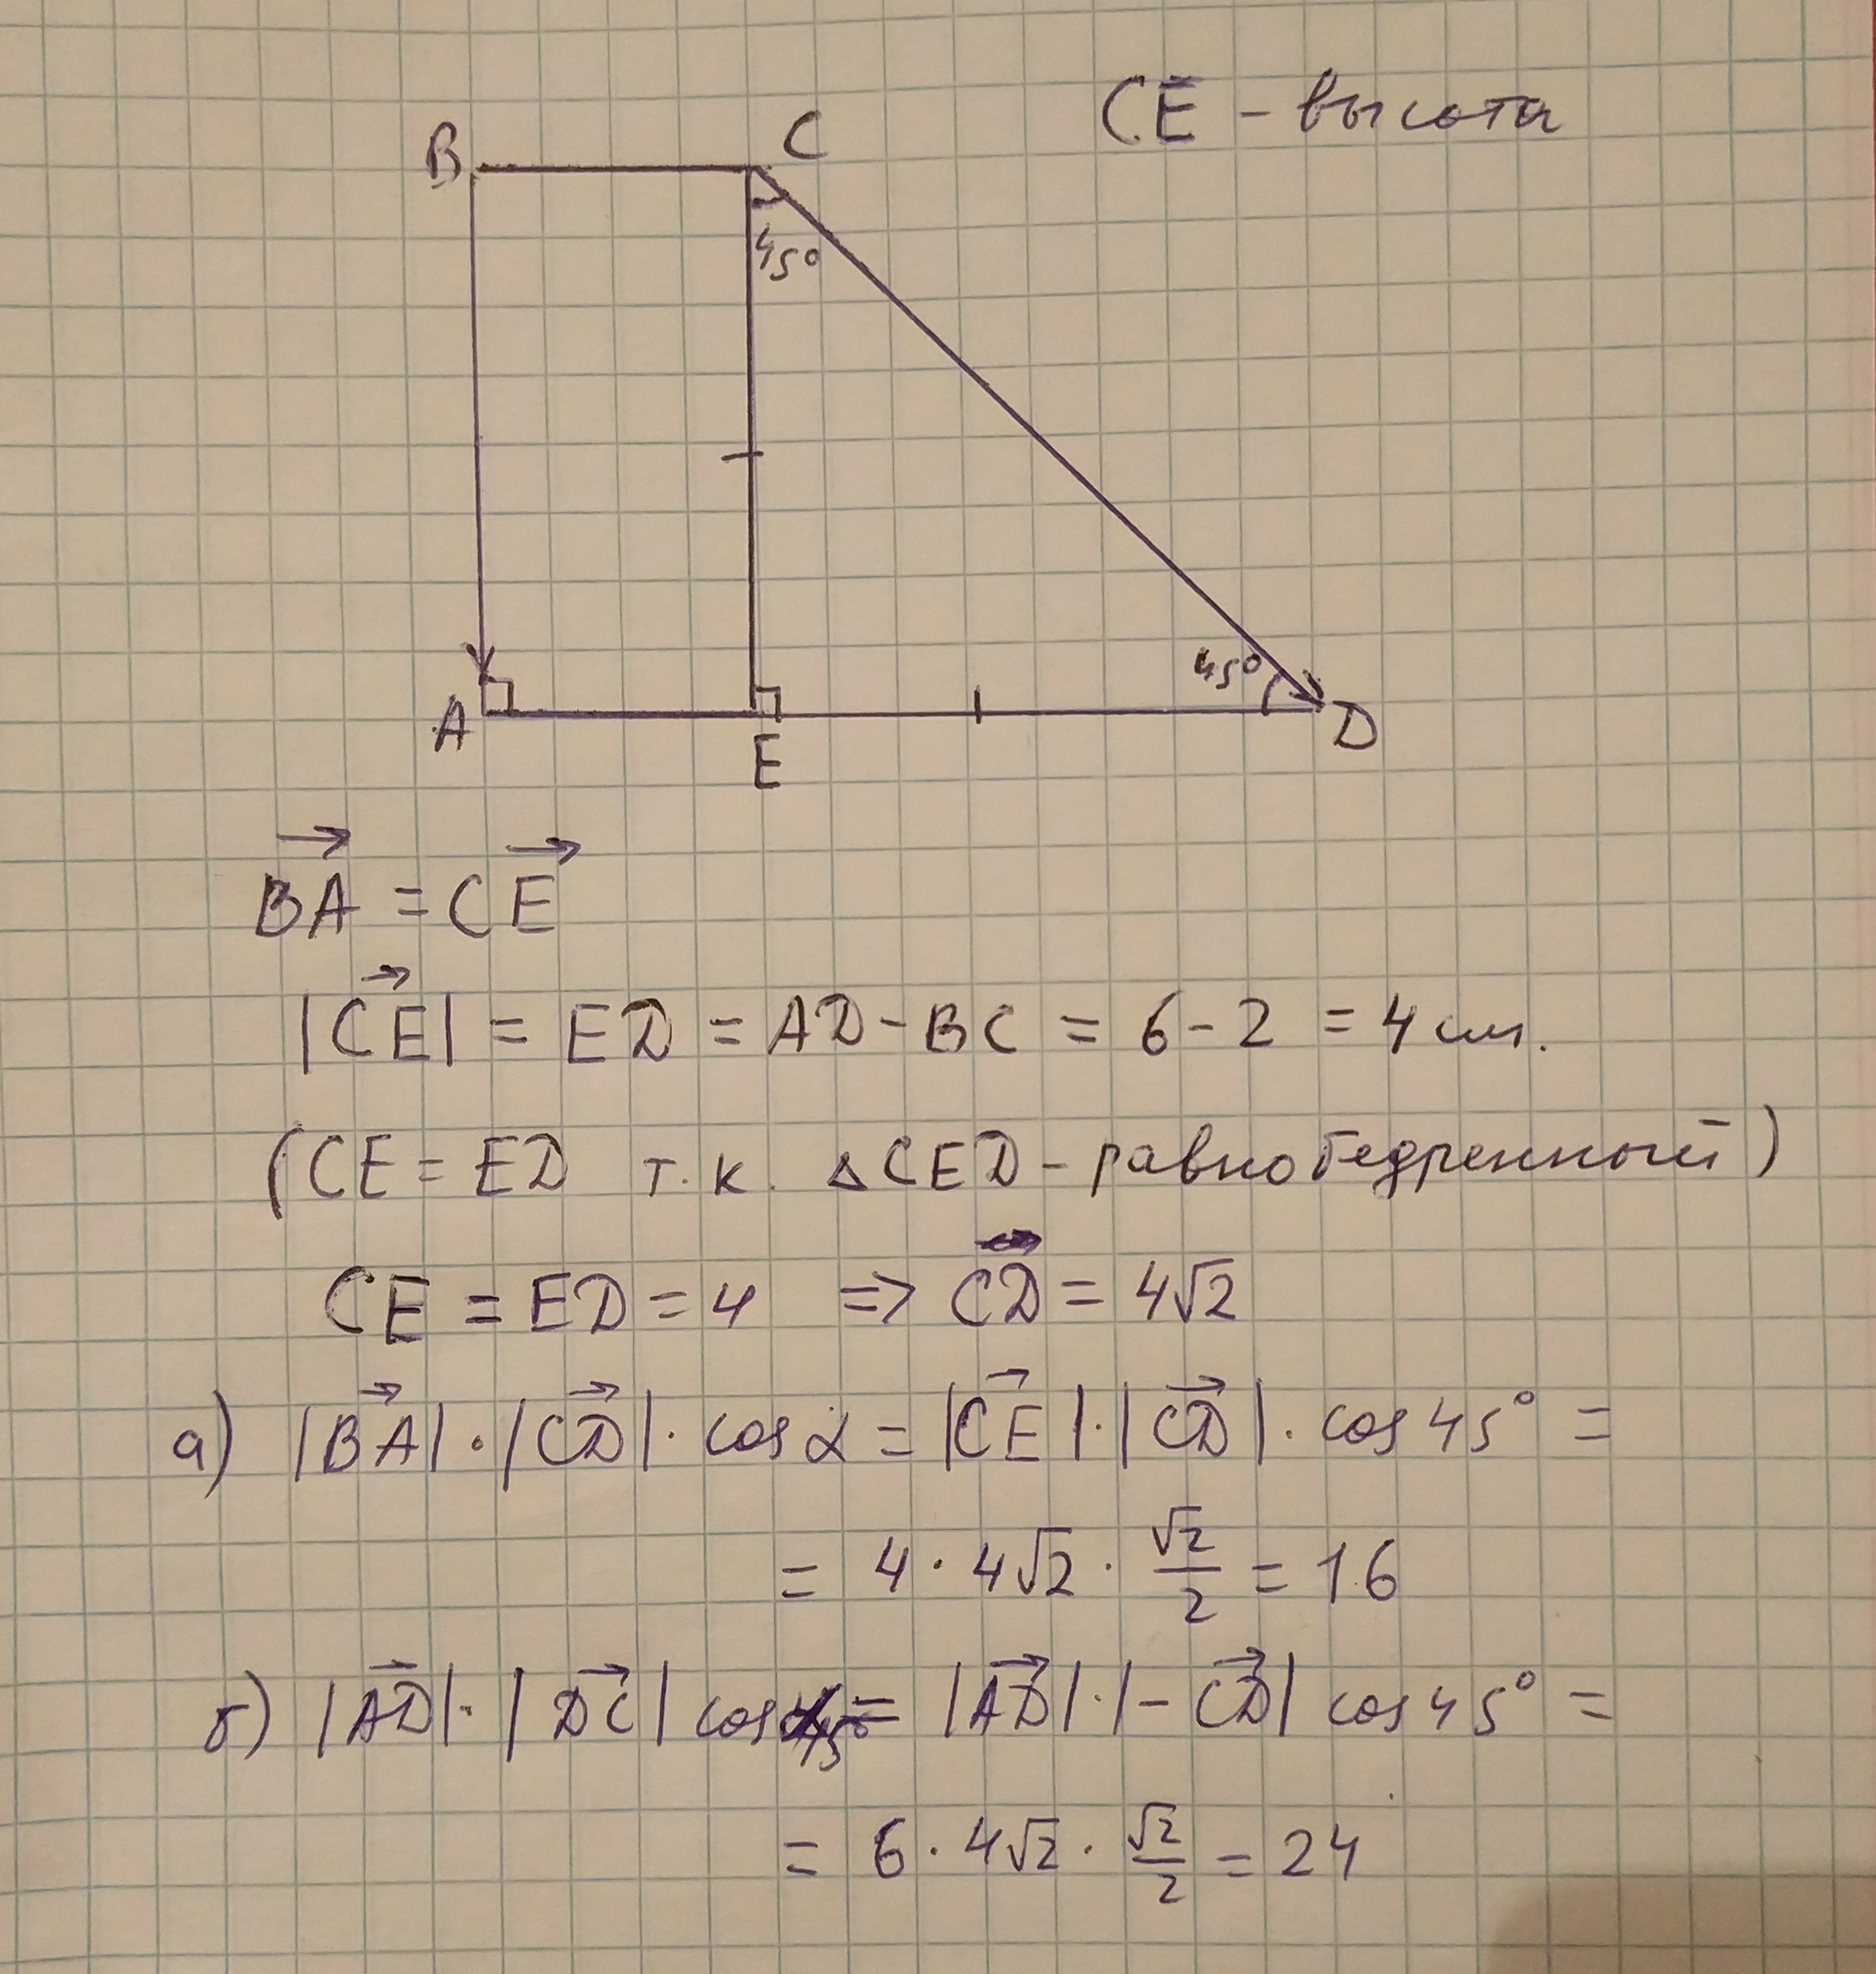 CE - высота
B
C
45°
45°
A
E
D
BA = CE
|CE| = ED = AD - BC = 6 - 2 = 4 см.
(CE = ED т.к. ΔCED - равнобедренный)
CE = ED = 4 => CD = 4√2
а) |BA| · |CD| · cos α = |CE| · |CD| · cos 45° =
= 4 · 4√2 · √2/2 = 16
б) |AD| · |DC| cos = |AD| · |-CD| cos 45° =
= 6 · 4√2 · √2/2 = 24